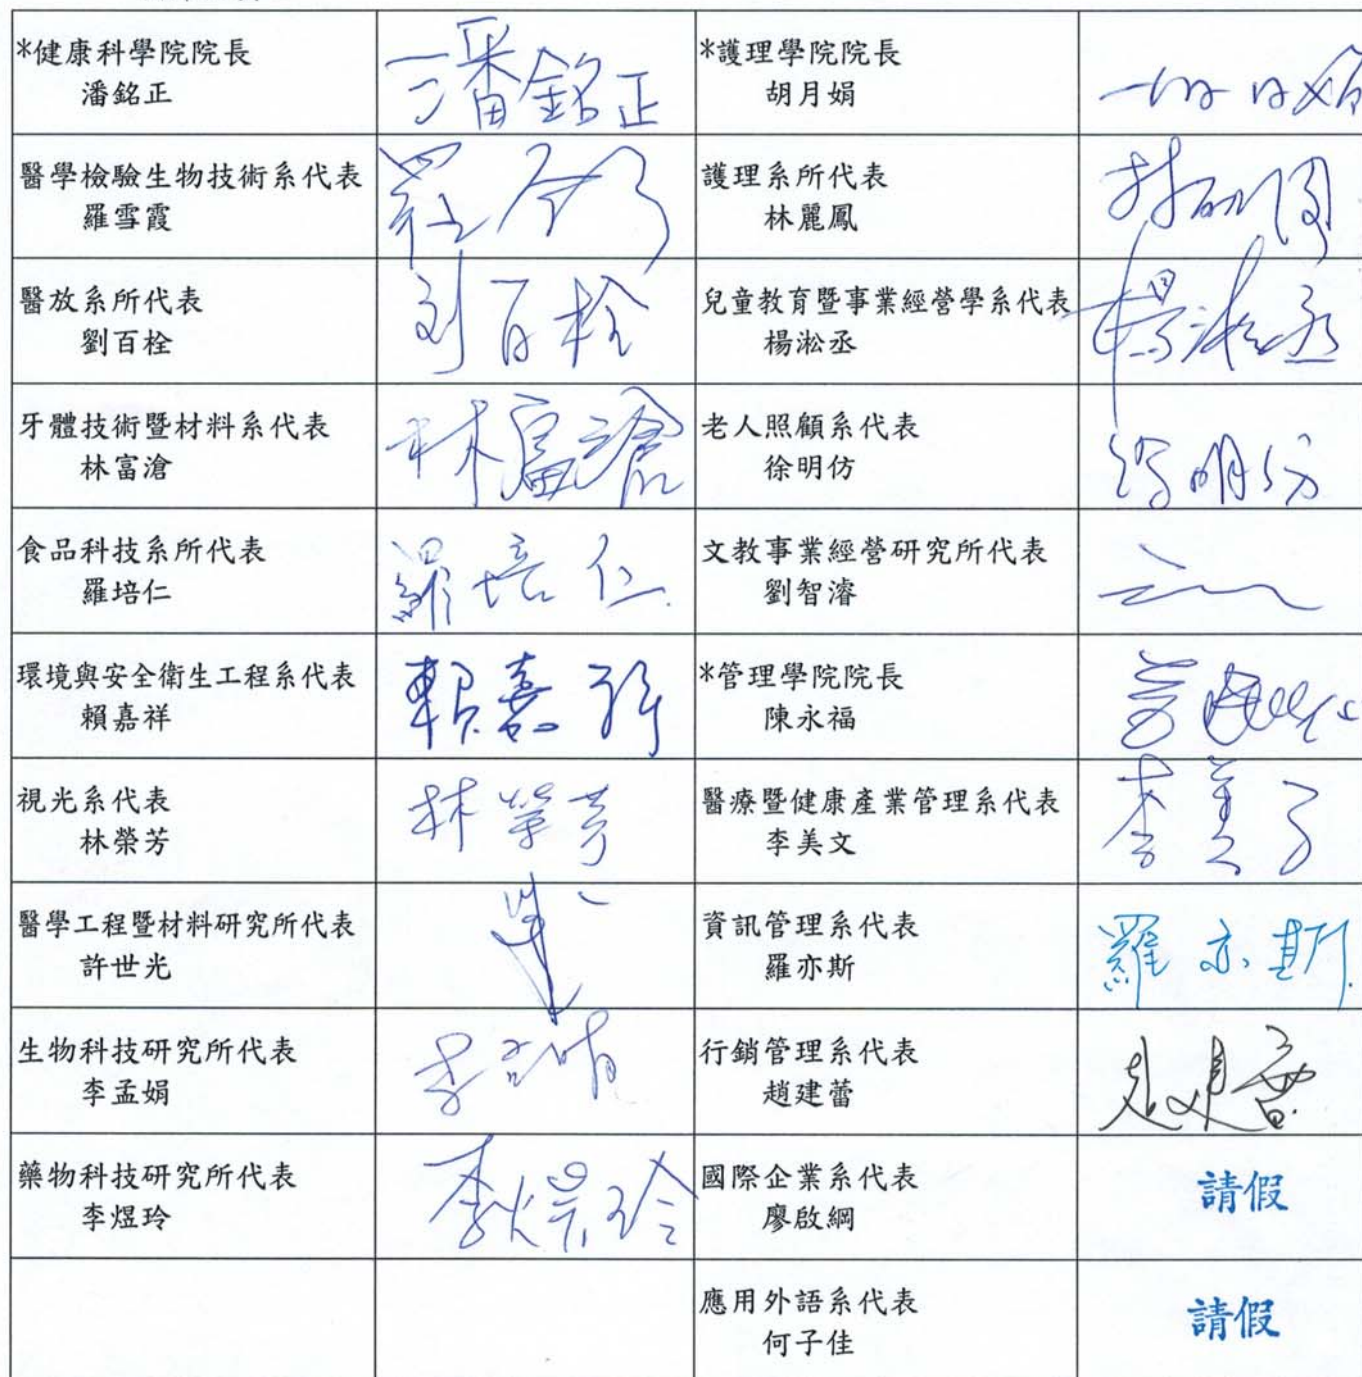 *健康科學院院長
潘銘正
潘銘正
*護理學院院長
胡月娟
醫學檢驗生物技術系代表
羅雪霞
護理系所代表
林麗鳳
醫放系所代表
劉百栓
刘百栓
兒童教育暨事業經營學系代表
楊淞丞
楊淞丞
牙體技術暨材料系代表
林富滄
林富滄
老人照顧系代表
徐明仿
徐明仿
食品科技系所代表
羅培仁
羅培仁
文教事業經營研究所代表
劉智濬
環境與安全衛生工程系代表
賴嘉祥
賴嘉祥
*管理學院院長
陳永福
視光系代表
林榮芳
林榮芳
醫療暨健康產業管理系代表
李美文
李美文
醫學工程暨材料研究所代表
許世光
資訊管理系代表
羅亦斯
羅亦斯
生物科技研究所代表
李孟娟
行銷管理系代表
趙建蕾
藥物科技研究所代表
李煜玲
李煜玲
國際企業系代表
廖啟綱
請假
應用外語系代表
何子佳
請假